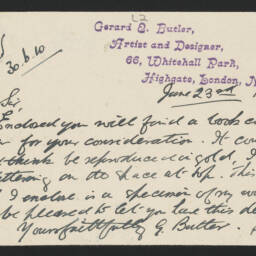 L2
Gerard S. Butler,
Artist and Designer,
66, Whitehall Park,
Highgate, London, N
30.6.10
June 23rd
Sir,
Enclosed you will find a book
for your consideration. It
think be reproduced in gold,
lettering on the space at top. This
I enclose is a specimen of my
be pleased to let you have this
Yours faithfully G. Butler.